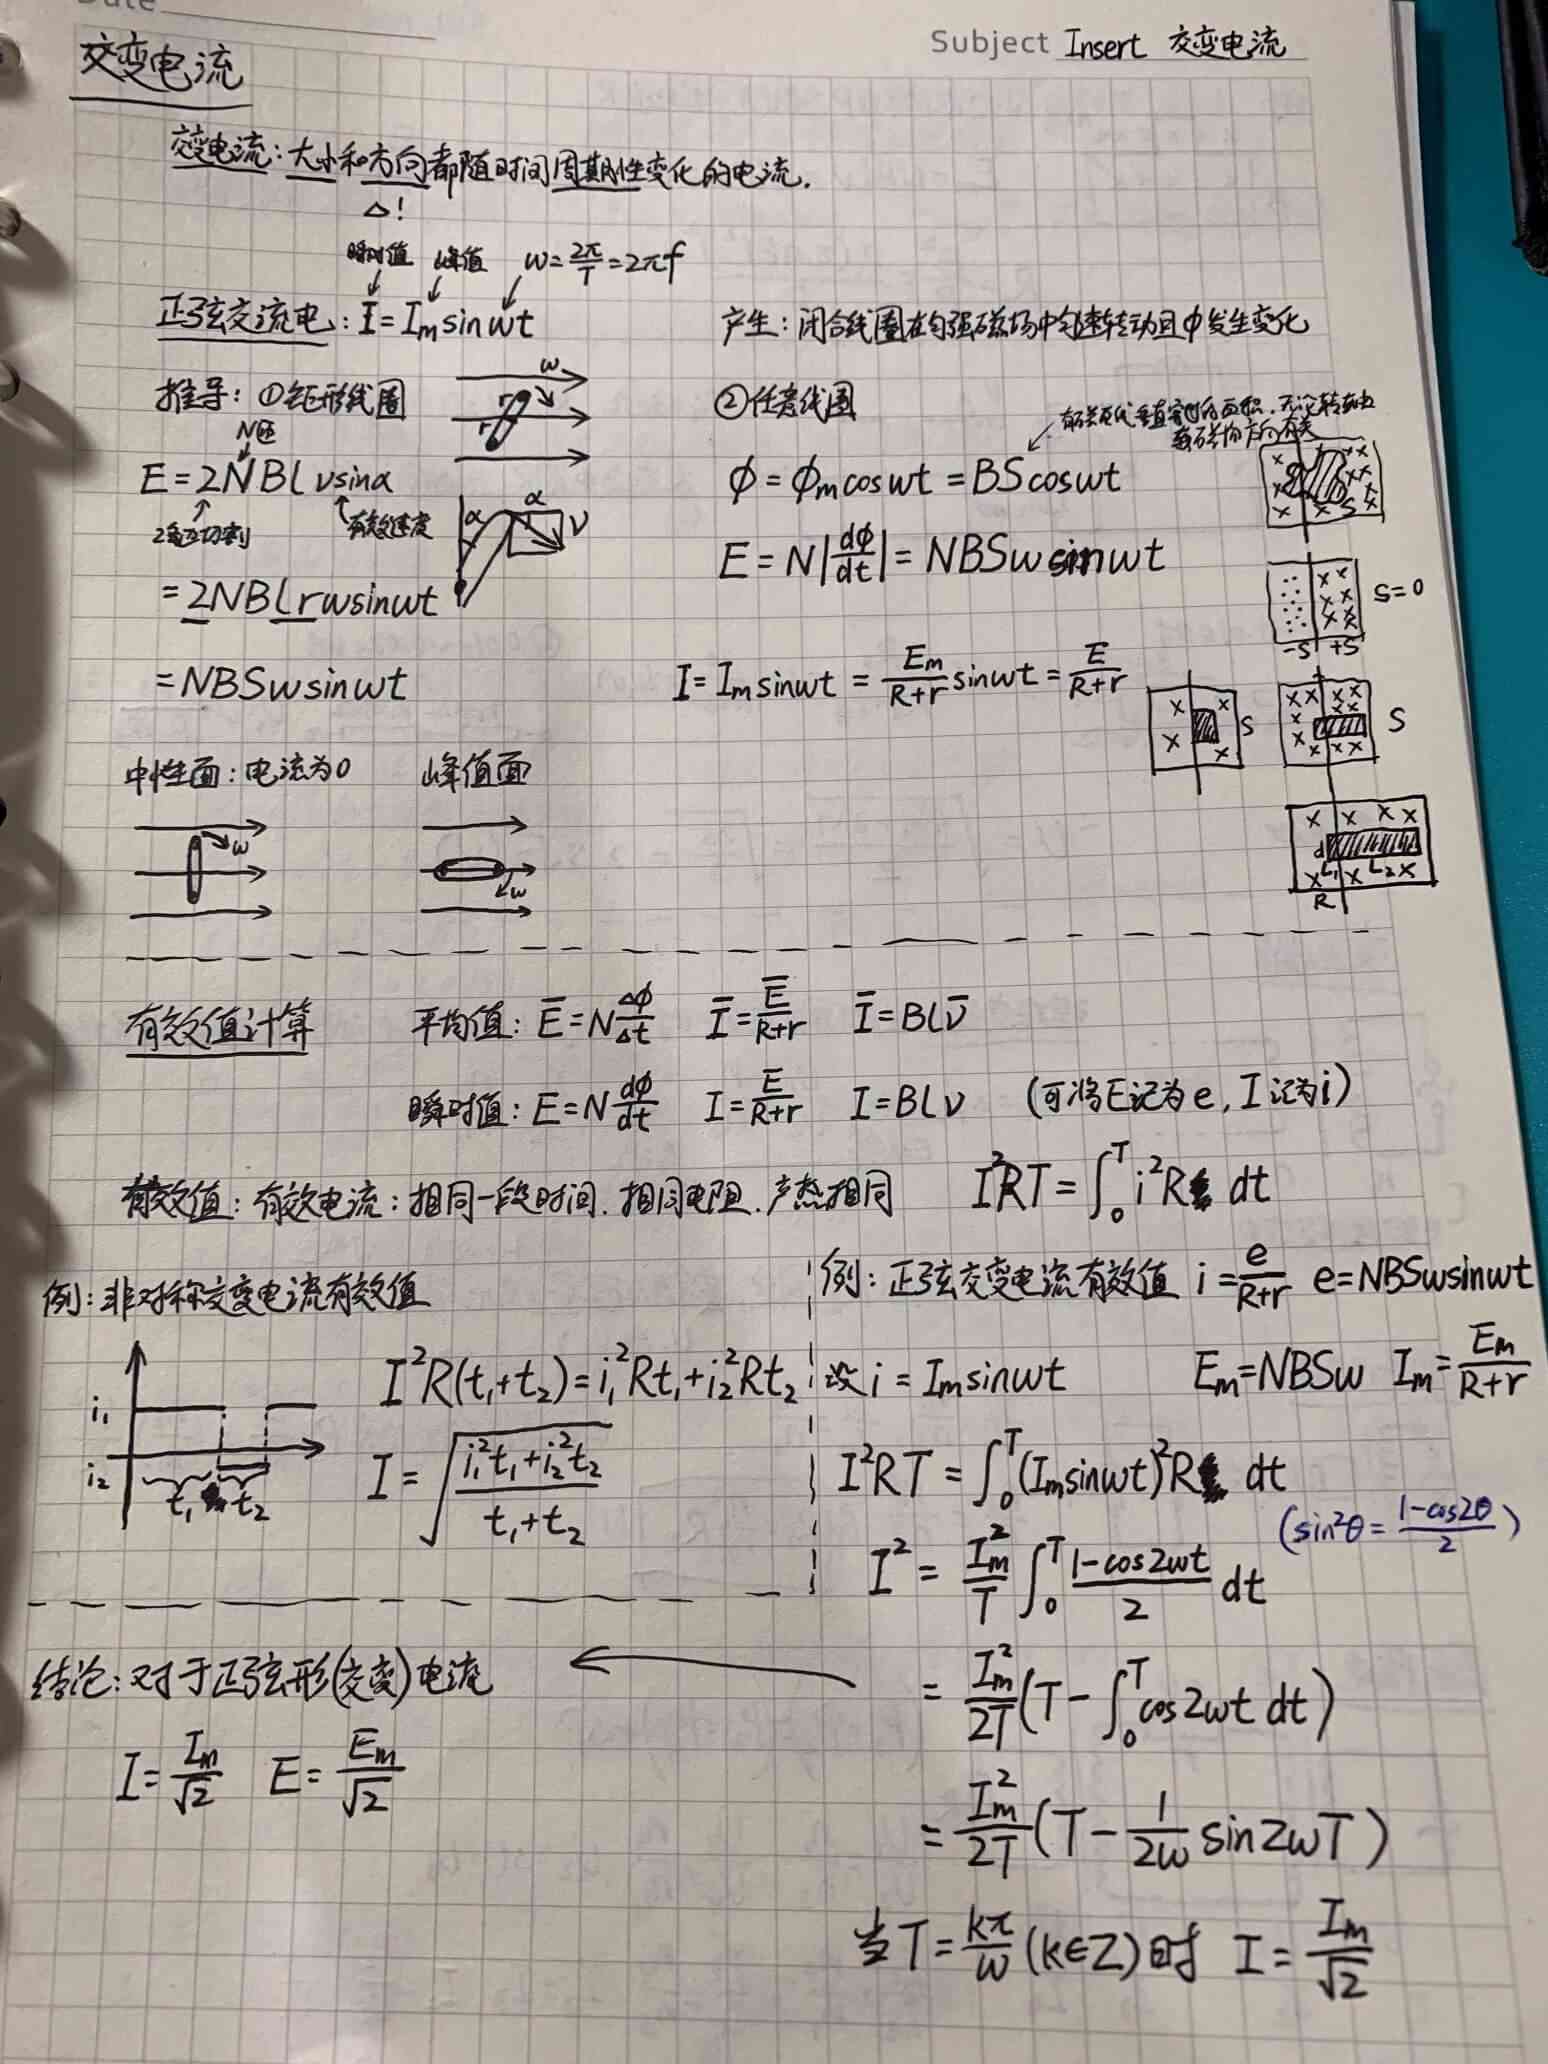 Date
Subject Insert 交变电流
交变电流
交变电流：大小和方向都随时间周期性变化的电流.
△!
瞬时值 峰值 ω=2π/T=2πf
正弦交流电：I=Iₘsinωt
产生：闭合线圈在匀强磁场中匀速转动且Φ发生变化
推导：①矩形线圈
ω
r
r
N匝
E=2NBLvsinα
2条边切割
有效速度
α
α
v
=2NBLrωsinωt
=NBSωsinωt
②任意线圈
ϕ=ϕₘcosωt=BScosωt
E=N|dϕ/dt|=NBSωsinωt
I=Iₘsinωt=Eₘ/(R+r) sinωt=E/(R+r)
S
S=0
-S +S
S
S
d
L₁ L₂
R
中性面：电流为0
峰值面
ω
ω
有效值计算
平均值：E̅=NΔϕ/Δt I̅=E̅/(R+r) I̅=BLv̅
瞬时值：E=Ndϕ/dt I=E/(R+r) I=BLv (可将E记为e,I记为i)
有效值：有效电流：相同一段时间.相同电阻.产热相同 I²RT=∫₀ᵀi²R dt
例：非对称交变电流有效值
i₁
i₂
t₁ t₂
I²R(t₁+t₂)=i₁²Rt₁+i₂²Rt₂
I=√((i₁²t₁+i₂²t₂)/(t₁+t₂))
例：正弦交变电流有效值 i=e/(R+r) e=NBSωsinωt
设i=Iₘsinωt Eₘ=NBSω Iₘ=Eₘ/(R+r)
I²RT=∫₀ᵀ(Iₘsinωt)²R dt
(sin²θ=(1-cos2θ)/2)
I²=Iₘ²/T ∫₀ᵀ(1-cos2ωt)/2 dt
=Iₘ²/2T(T-∫₀ᵀcos2ωt dt)
=Iₘ²/2T(T-1/2ω sin2ωT)
当T=kπ/ω(k∈Z)时 I=Iₘ/√2
结论：对于正弦形(交变)电流
I=Iₘ/√2 E=Eₘ/√2